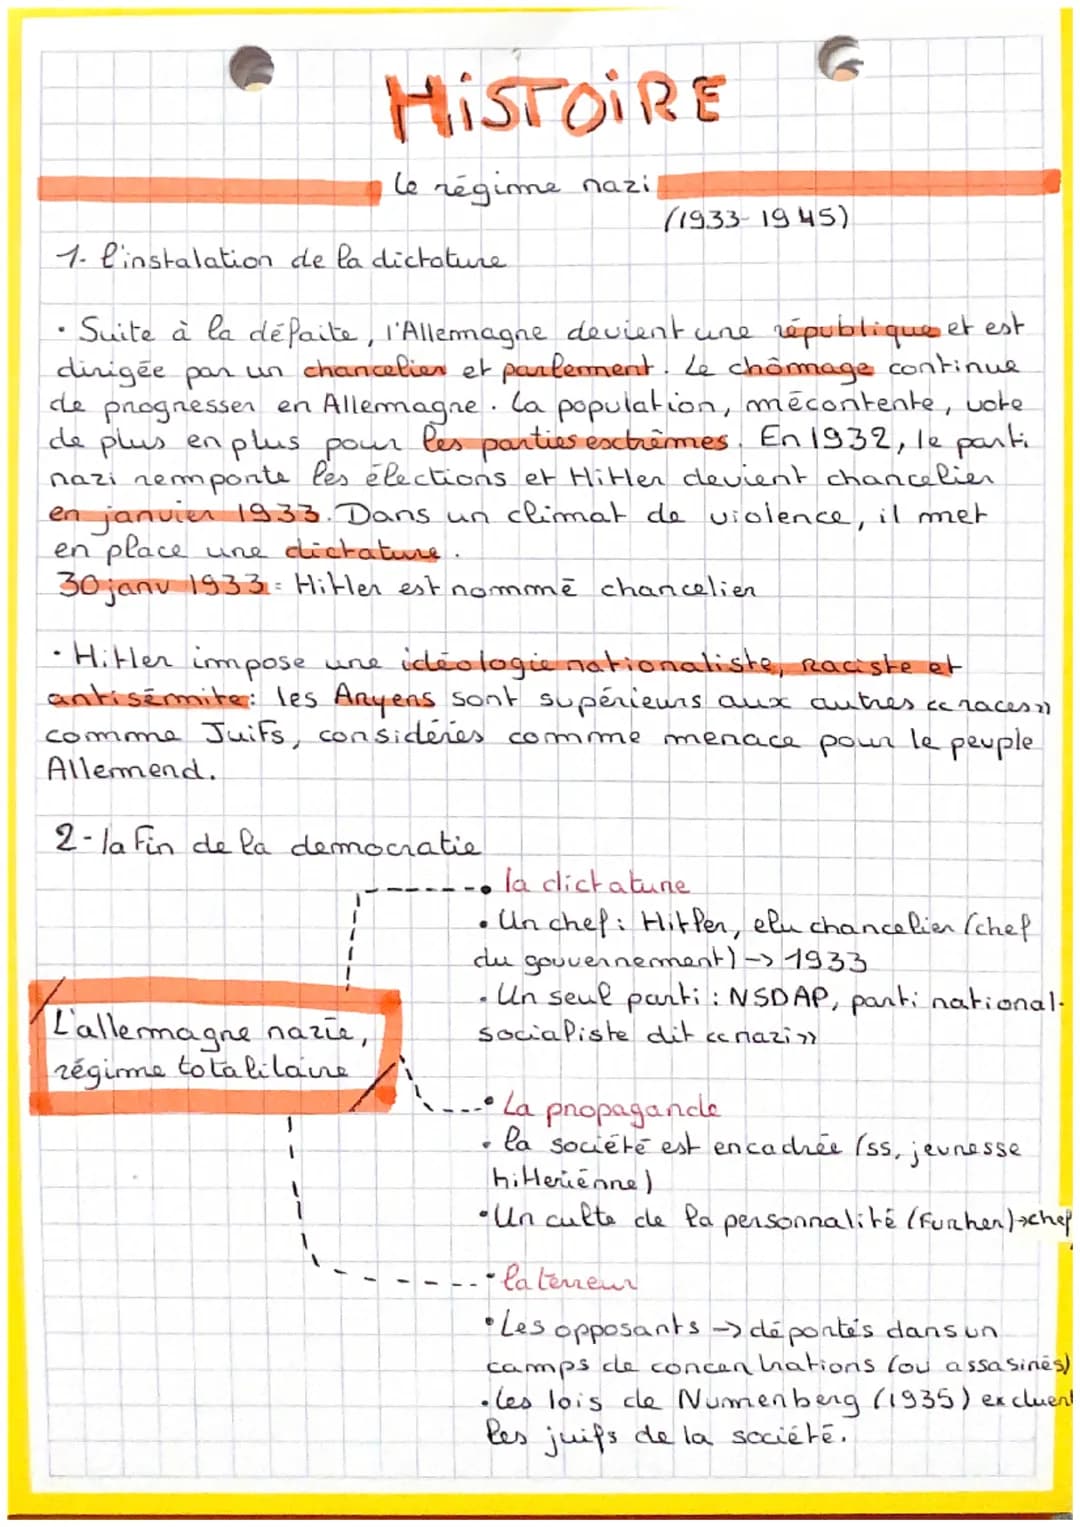 HiSTOiRE
le régime nazi
(1933-1945)
1- l'instalation de la dictature
• Suite à la défaite, l'Allemagne devient une république et est
dirigée par un chancelier et parlement. Le chômage continue
de progresser en Allemagne. La population, mécontente, vote
de plus en plus pour les parties esctrêmes. En 1932, le parti
nazi remporte les élections et Hitler devient chancelier
en janvier 1933. Dans un climat de violence, il met
en place une dictature.
30 janv 1933 = Hitler est nommé chancelier
• Hitler impose une idéologie nationaliste, raciste et
antisémite: les Aryens sont supérieurs aux autres «races»
comme Juifs, considérés comme menace pour le peuple
Allemend.
2- la fin de la democratie
• la dictature
• Un chef : Hitler, elu chancelier (chef
du gouvernement) -> 1933
• Un seul parti : NSDAP, parti national-
socialiste dit «nazi»
L'allemagne nazie,
régime totalitaire
• La propagande
• la société est encadrée (ss, jeunesse
hitleriénne)
• Un culte de la personnalité (Furher)->chef
• la terreur
• Les opposants -> déportés dans un
camps de concentrations (ou assasinés)
• les lois de Nuremberg (1935) excluent
les juifs de la société.